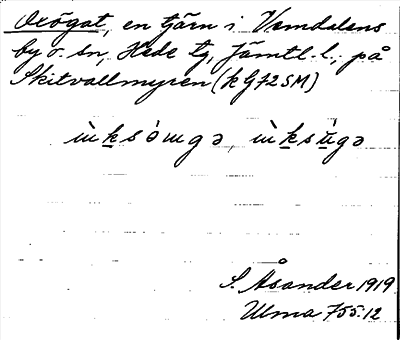 Oxögat, en tjärn i Vemdalens
by o. sn, Hede tg, Jämtl. l., på
Skitvallmyren (k G72SM)
ùksòɯgə, ùksùgə
S. Åsander 1919
Ulma 755:12